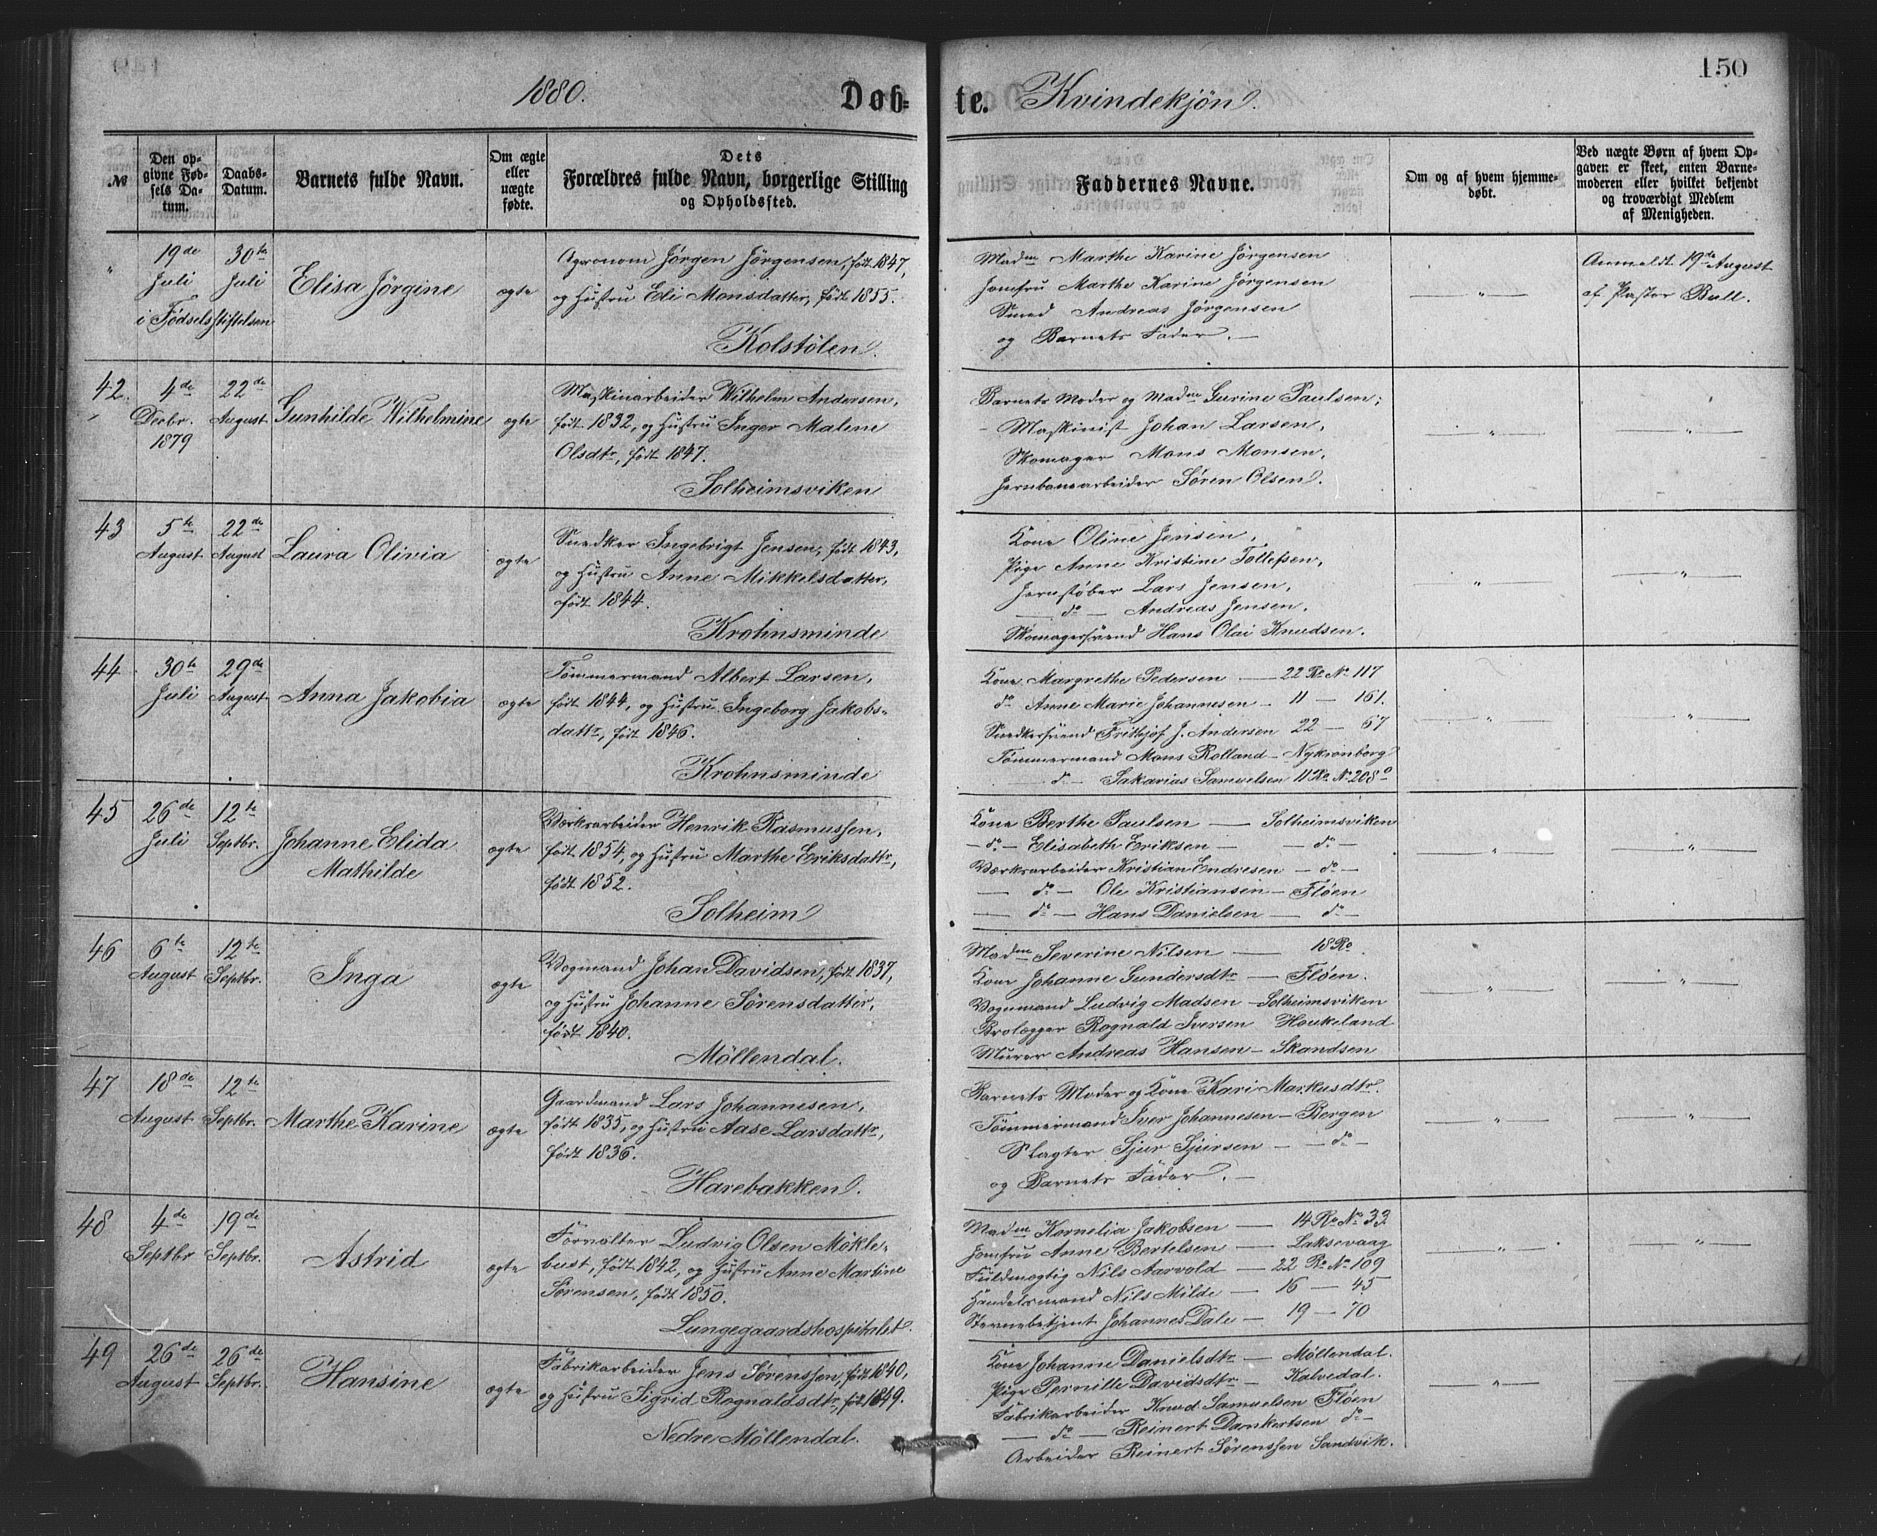 150
1880.
Døb-
te. Kvindekjön.
№
Den op-
givne Fød-
sels Da-
tum.
Daabs-
Datum.
Barnets fulde Navn.
Om ægte
eller
uægte
fødte.
Dets
Forældres fulde Navn, borgerlige Stilling
og Opholdssted.
Faddernes Navne.
Om og af hvem hjemme-
døbt.
Ved uægte Børn af hvem Op-
gaven er skeet, enten Barne-
moderen eller hvilket bekjendt
og troværdigt Medlem
af Menigheden.
"
19de
Juli
i Födselsstiftelsen
30te
Juli
Elisa Jörgine
ægte
Agronom Jörgen Jörgensen, født 1847,
og Hustru Eli Monsdatter, født 1855.
Kolstölen.
Madm Marthe Karine Jörgensen
Jomfru Marthe Karine Jörgensen
Smed Andreas Jörgensen
og Barnets Fader. —
— " —
Anmeldt 19de August
af Pastor Bull.
42.
4de
Decbr.
1879
22de
August
Gunhilde Wilhelmine
ægte
Maskinarbeider Wilhelm Andersen,
født 1832, og Hustru Inger Malene
Olsdtr, født 1847.
Solheimsviken
Barnets Moder og Madme Gurine Paulsen;
Maskinist Johan Larsen,
Skomager Mons Monsen,
Jernbanearbeider Sören Olsen.
— " —
— " —
43
5te
August
22de
August
Laura Olivia
ægte
Snedker Ingebrigt Jensen, født 1843,
og Hustru Anne Mikkelsdatter,
født 1844.
Krohnsminde
Kone Oline Jensen,
Pige Anne Kristine Tollefsen,
Jernstøber Lars Jensen,
— do — Andreas Jensen,
Skomagersvend Hans Olai Knudsen.
— " —
— " —
44
30te
Juli
29de
August
Anna Jakobia
ægte
Tømmermand Albert Larsen,
født 1844, og Hustru Ingeborg Jakobs-
dattr, født 1846.
Krohnsminde
Kone Margrethe Pedersen — 22 Ro № 117
do Anne Marie Johannesen — 11 — 161.
Snedkersvend Frithjof J. Andersen 22 — 67
Tømmermand Mons Rolland — Nykronborg
— do — Sakarias Samuelsen 11 Ro № 208 o
— " —
— " —
45
26de
Juli
12te
Septbr.
Johanne Elida
Mathilde
ægte
Værksarbeider Henrik Rasmussen,
født 1854, og Hustru Marthe Eriksdattr,
født 1852.
Solheim
Kone Berthe Paulsen — Solheimsviken
— do — Elisabeth Eriksen — — do —
Værksarbeider Kristian Endresen — do —
— do — Ole Kristiansen — Flöen
— do — Hans Danielsen — do —
— " —
— " —
46
6te
August
12te
Septbr.
Inga
ægte
Vognmand Johan Davidsen, født 1837,
og Hustru Johanne Sörensdatter,
født 1840.
Möllendal.
Madm Severine Nilsen — 18 Ro
Kone Johanne Gundersdtr — Flöen.
Vognmand Ludvig Madsen — Solheimsviken
Brolægger Rognald Iversen Houkeland
Murer Andreas Hansen — Skandsen
— " —
— " —
47
18de
August
12te
Septbr.
Marthe Karine
ægte
Gaardmand Lars Johannesen,
født 1835, og Hustru Aase Larsdattr,
født 1836.
Harebakken.
Barnets Moder og Kone Kari Markusdtr.
Tømmermand Iver Johannesen — Bergen
Slagter Sjur Sjursen — do —
og Barnets Fader. —
— " —
— " —
48
4de
Septbr
19de
Septbr.
Astrid
ægte
Forvalter Ludvig Olsen Mökle-
bust, født 1842, og Hustru Anne Martine
Sörensen, født 1850.
Lungegaardshospitalet.
Madm Kornelia Jakobsen — 14 Ro № 33
Jomfru Anne Bertelsen — Laksevaag
Fuldmægtig Nils Aarvold — 22 Ro № 109
Handelsmand Nils Milde — 16 — 45
Johannes Dale — 19 — 70
— " —
— " —
49
26de
August
26de
Septbr.
Hansine
ægte
Fabrikarbeider Jens Sörenssen, født 1840,
og Hustru Sigrid Rognaldsdtr, født 1849.
Nedre Möllendal.
Kone Johanne Danielsdtr — Möllendal.
Pige Pernille Davidsdtr — Kalvedal.
Fabrikarbeider Knud Samuelsen Flöen
— do — Reinert Dankertsen do —
Arbeider Reinert Sörenssen Sandvik.
— " —
— " —